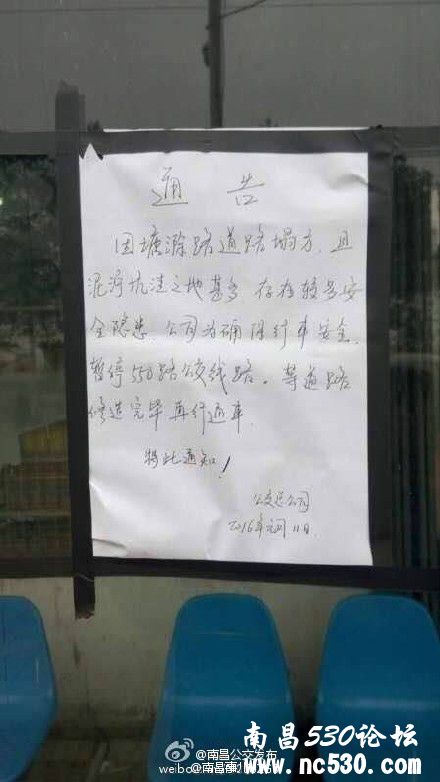 通 告
因塘滁路道路塌方，且
泥泞坑洼之地甚多 存在较多安
全隐患，公司为确保行车安全，
暂停550路公交线路。等道路
修造完毕再行通车.
特此通知！
公交总公司
2016年元月11日
@南昌公交发布
南昌530论坛
www.nc530.com